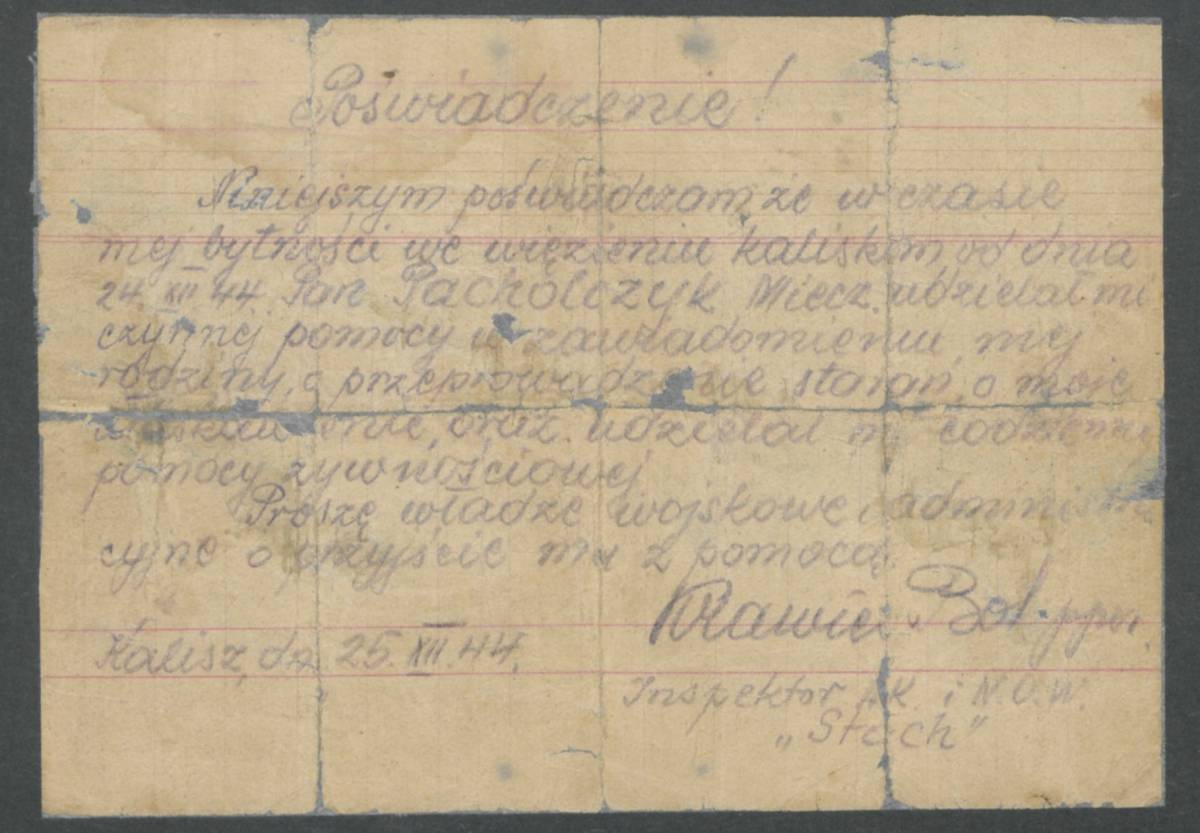 Poświadczenie!
Niniejszym poświadczam, że w czasie
mej bytności we więzieniu kaliskim od dnia
24. XII 44. Pan Pachólczyk Miecz. udzielał mi
czynnej pomocy w zawiadomieniu mej
rodziny, o przeprowadzenie starań, o moje
oraz udzielał mi codziennej
pomocy żywnościowej
Proszę władze wojskowe i administra
cyjne o przyjście mu z pomocą.
Krawiec Bol. ppor.
Kalisz, dn 25. XII. 44.
Inspektor A.K. i N.O.W.
„Stach"